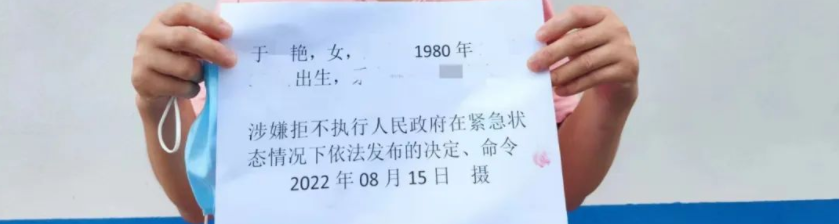 于 艳，女， 1980 年
出生，
涉嫌拒不执行人民政府在紧急状
态情况下依法发布的决定、命令
2022 年 08 月 15 日 摄